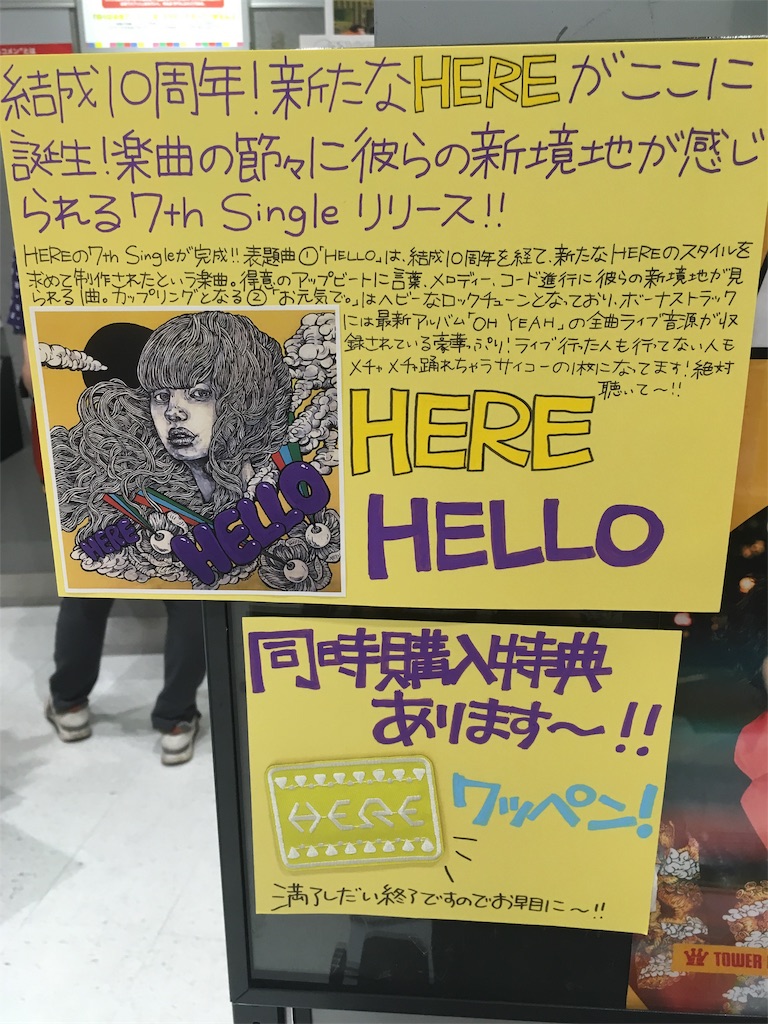 コメン"とは
結成10周年!新たなHEREがここに
誕生!楽曲の節々に彼らの新境地が感じ
られる7th Single リリース!!
HEREの7th Singleが完成!!表題曲①「HELLO」は、結成10周年を経て、新たなHEREのスタイルを
求めて制作されたという楽曲。得意のアップビートに言葉、メロディー、コード進行に彼らの新境地が見
られる1曲。カップリングとなる②「お元気で。」はヘビーなロックチューンとなっており、ボーナストラック
には最新アルバム「OH YEAH」の全曲ライブ音源が収
録されている豪華っぷり!ライブ行った人も行ってない人も
メチャメチャ踊れちゃうサイコーの1枚になってます!絶対
聴いて〜!!
HERE
HELLO
HERE
HELLO
同時購入特典
あります〜!!
HERE
ワッペン!
満了しだい終了ですのでお早目に〜!!
TOWER